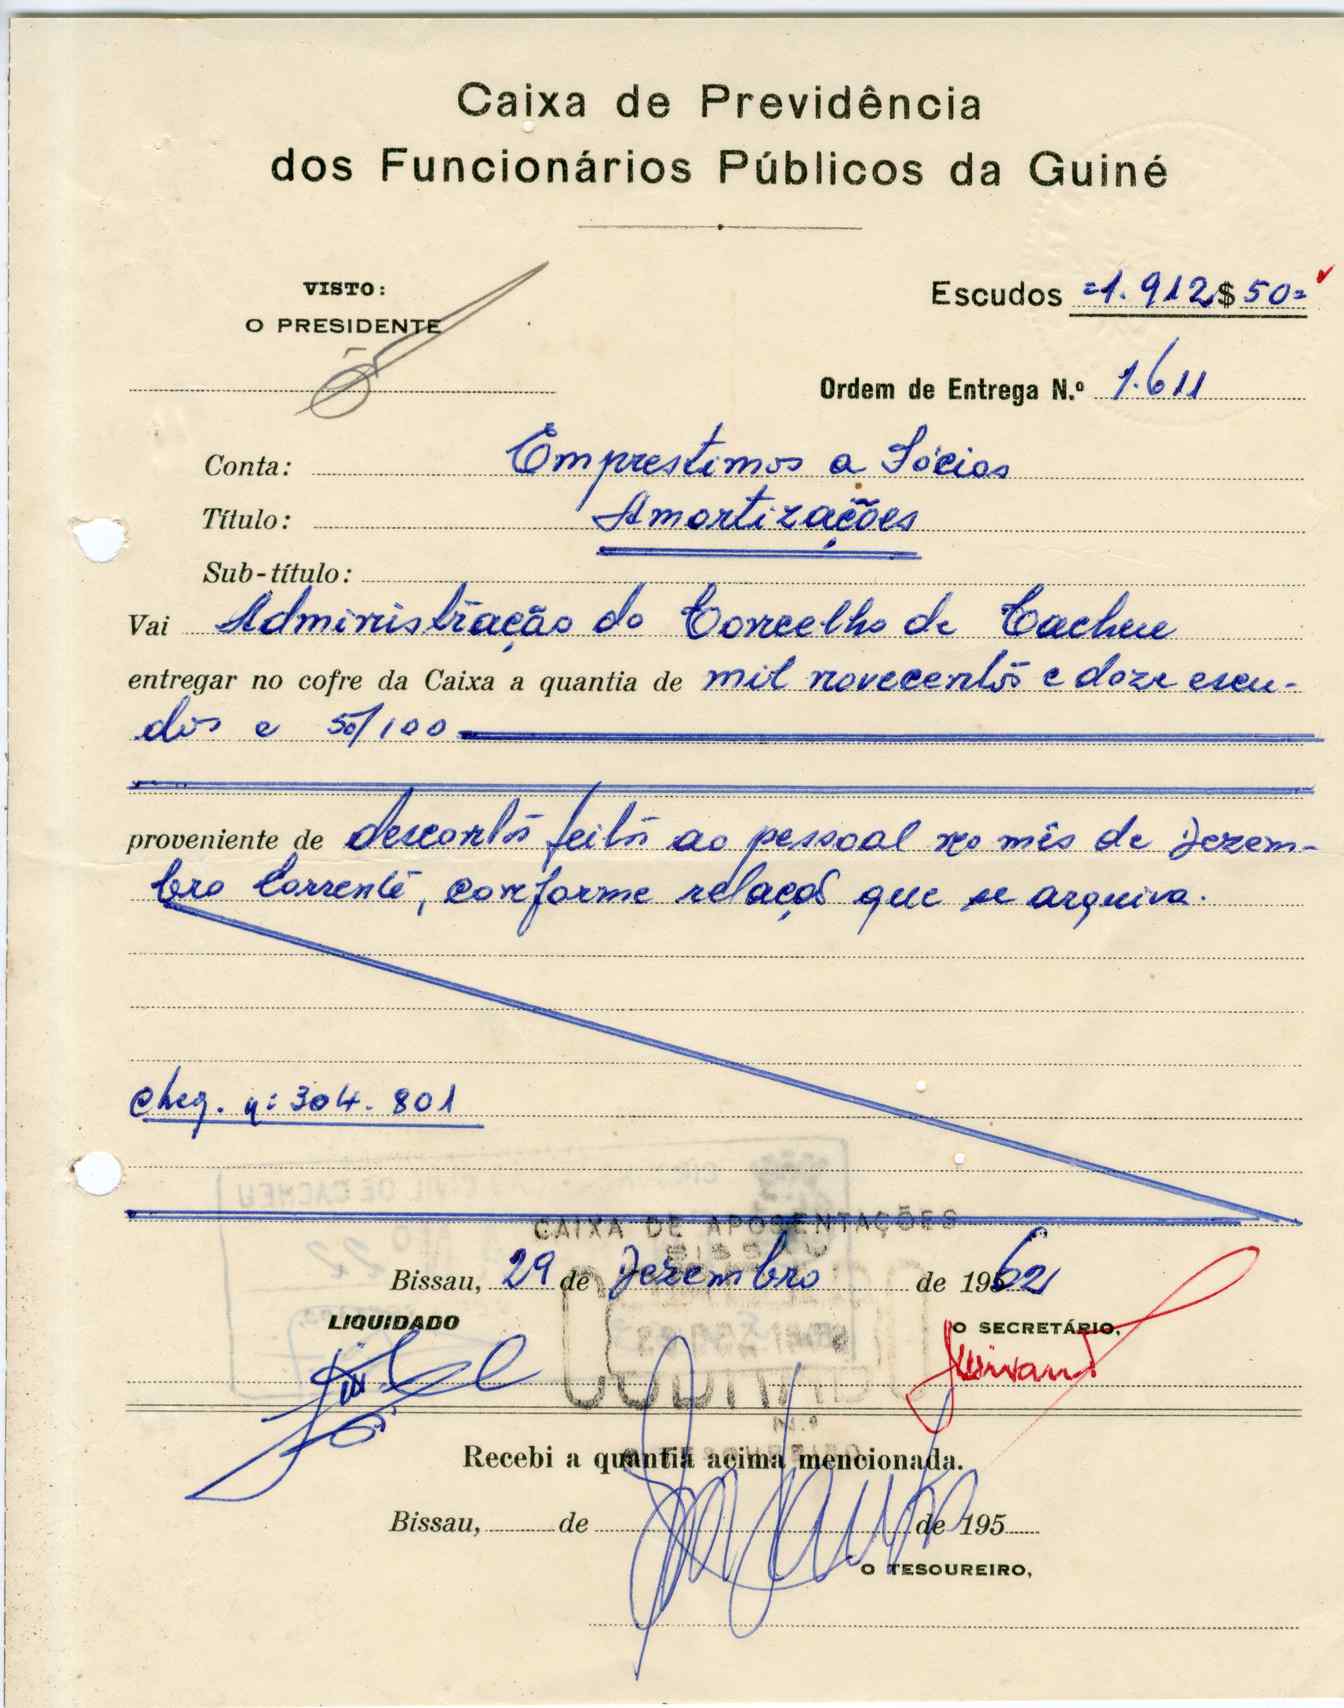 Caixa de Previdência
dos Funcionários Públicos da Guiné
VISTO:
O PRESIDENTE
Escudos =1.912$50=
Ordem de Entrega N.º 1.611
Conta: Emprestimos a Sócios
Título: Amortizações
Sub-título:
Vai Administração do Concelho de Cacheu
entregar no cofre da Caixa a quantia de mil novecentos e doze escu-
dos e 50/100
proveniente de descontos feitos ao pessoal no mês de Dezem-
bro corrente, conforme relação que se arquiva.
Cheq. nº 304.801
CAIXA DE APOSENTAÇÕES
BISSAU
Bissau, 29 de Dezembro de 1962
LIQUIDADO
O SECRETÁRIO,
Recebi a quantia acima mencionada.
Bissau, de de 195
O TESOUREIRO,